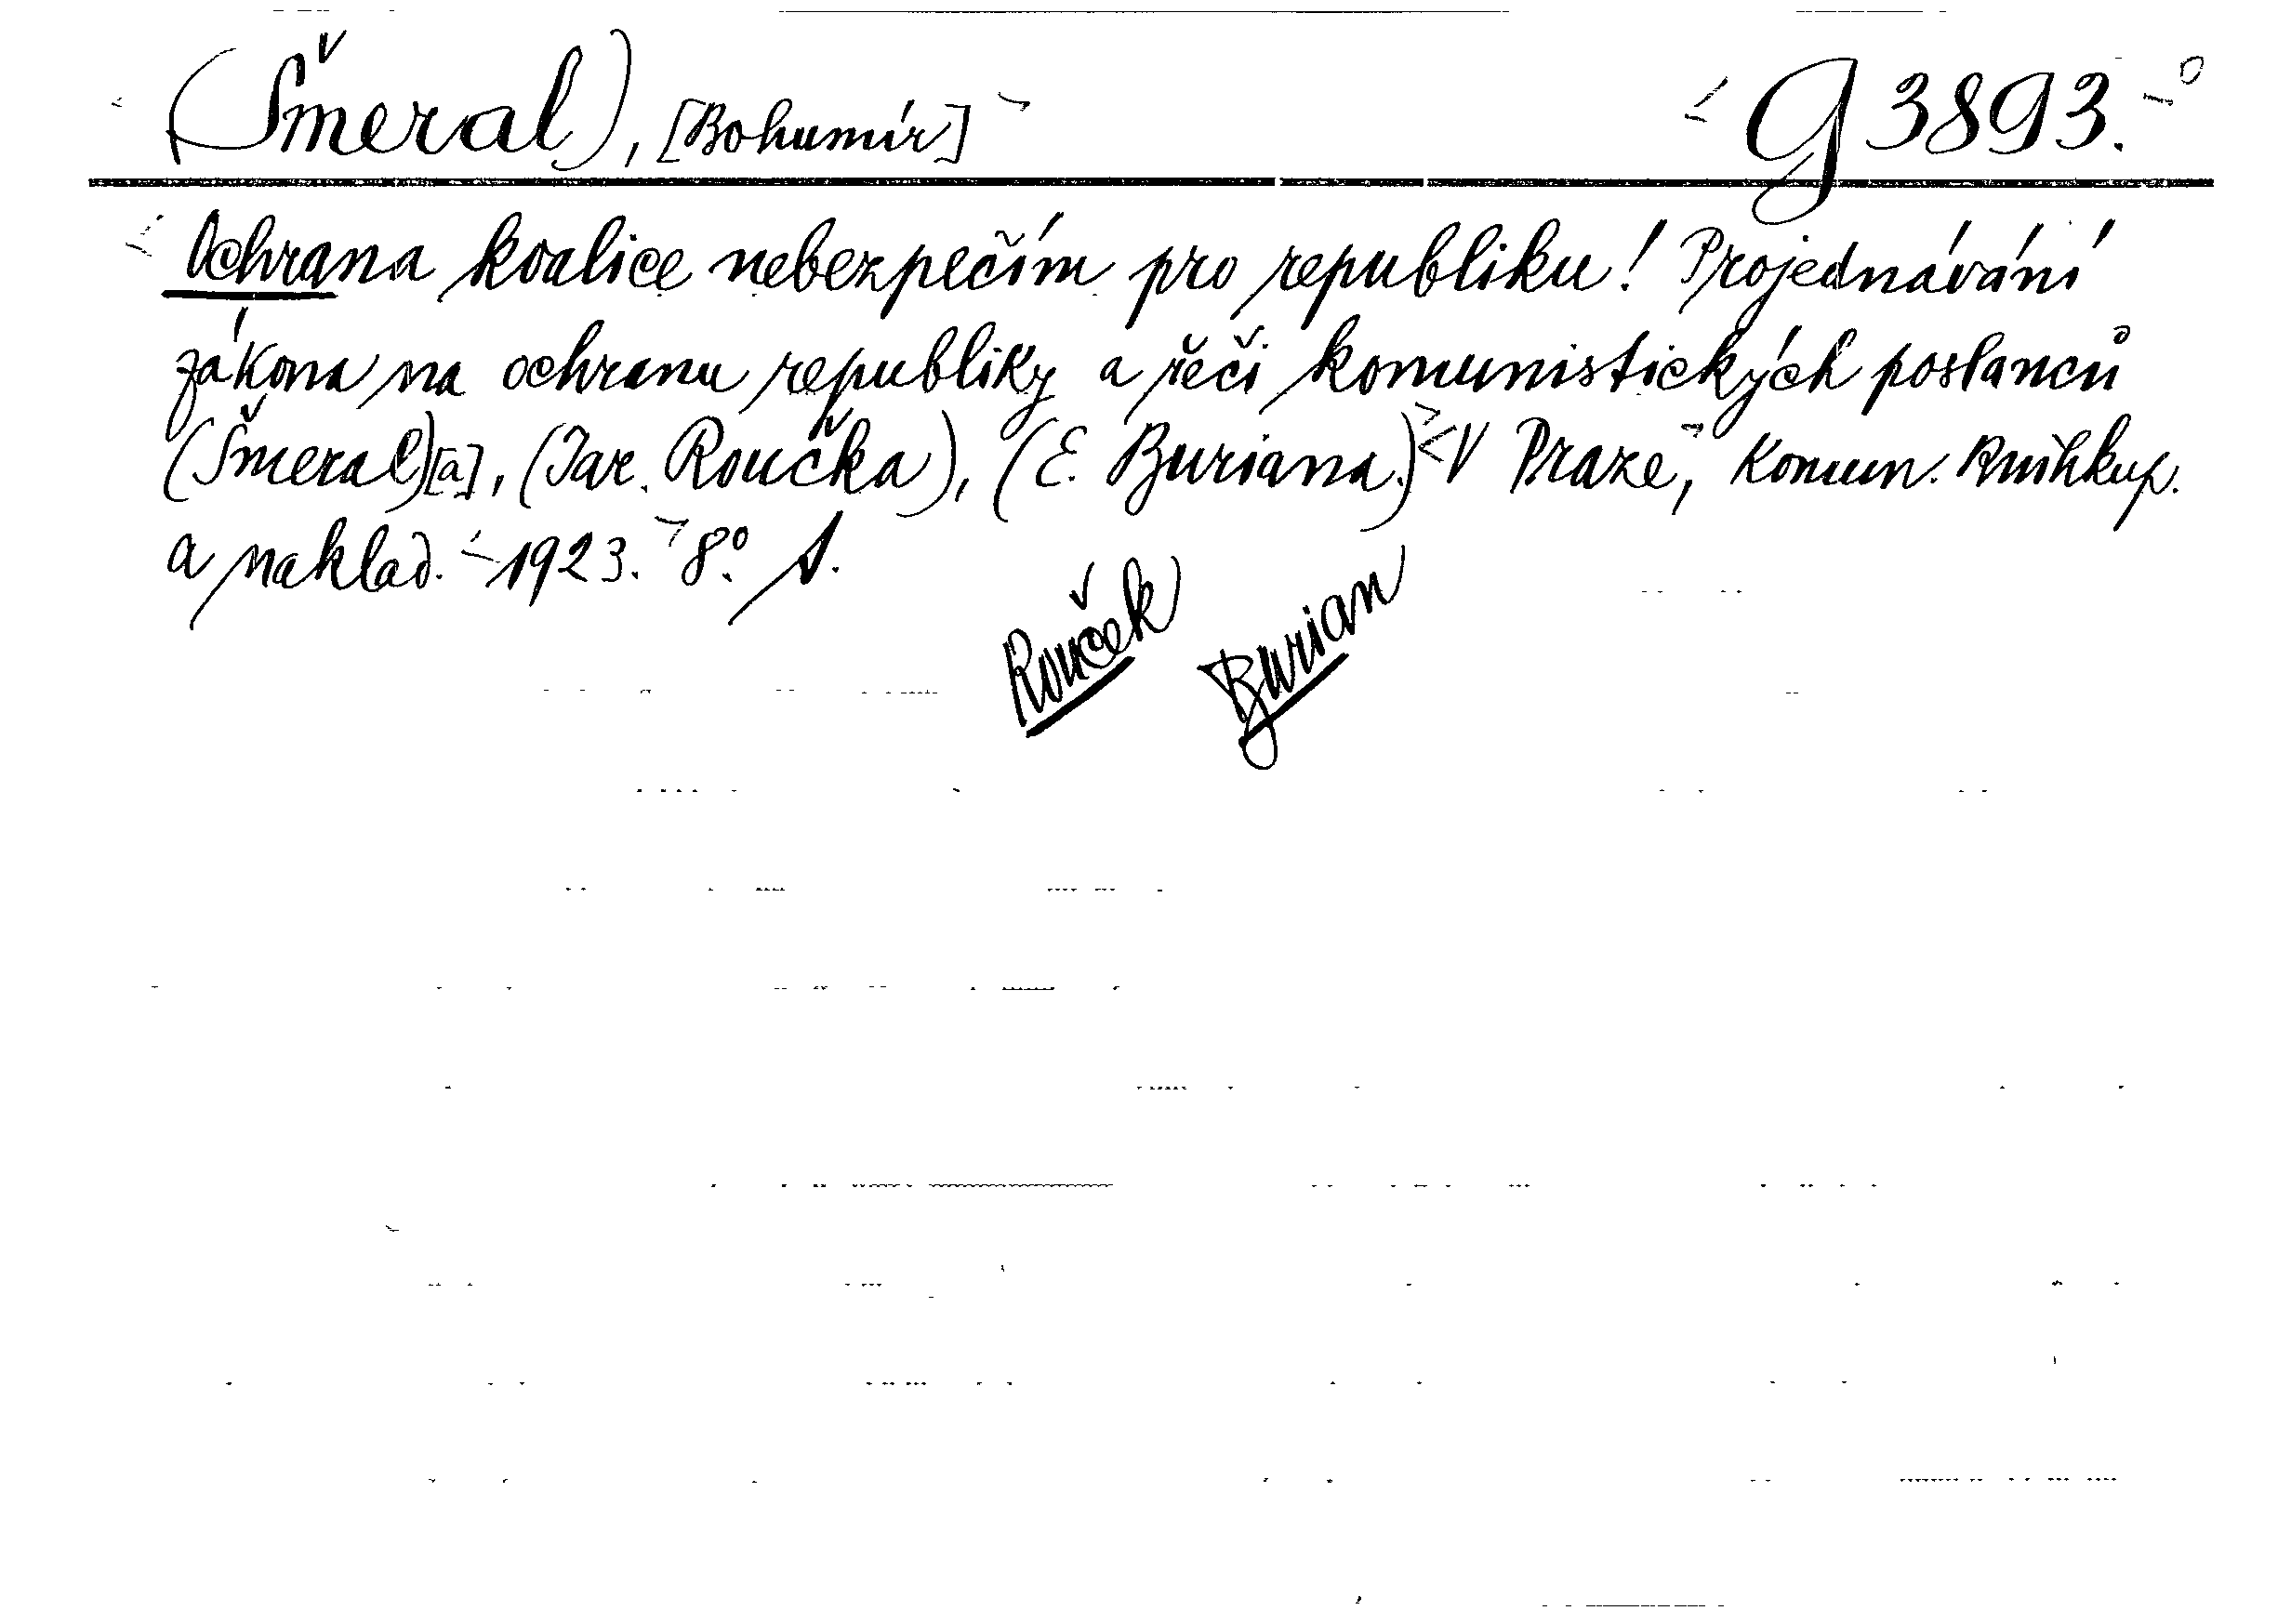 (Šmeral), [Bohumír] G 3893.
Ochrana koalice nebezpečím pro republiku! Projednávání
zákona na ochranu republiky a řeči komunistických poslanců
(Šmeral)[a], (Jar. Roučka), (E. Buriana.) V Praze, Komun. Knihkup.
a naklad. 1923. 8°. A.
Rouček Burian